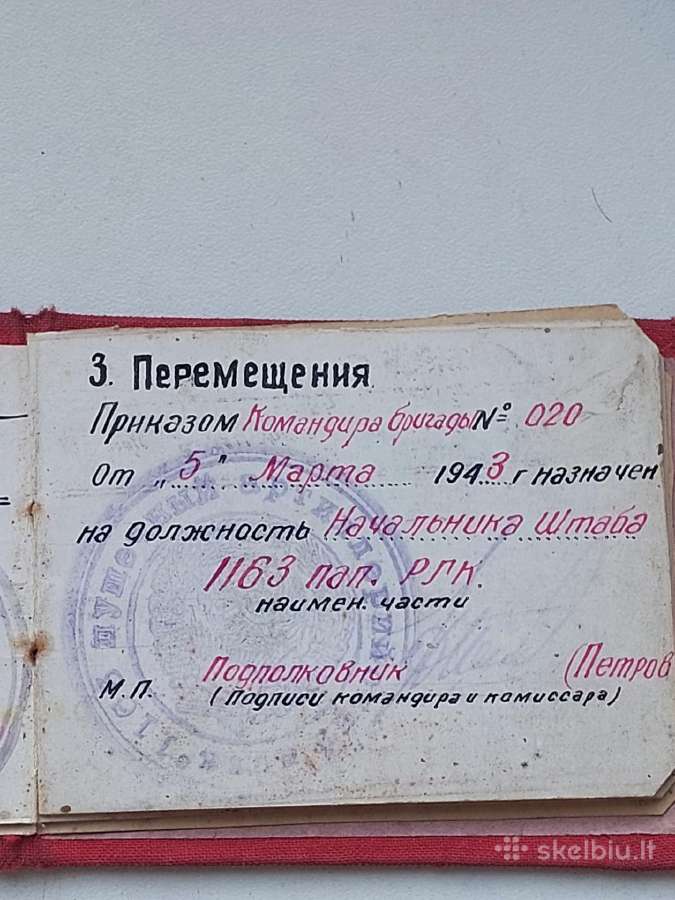 3. Перемещения
Приказом Командира бригады № 020
От „5" Марта 1943 г назначен
на должность Начальника Штаба
1163 пап. РГК.
наимен. части
Подполковник (Петров
М.П. (Подписи командира и комиссара)
пушечный артиллерий
skelbiu.lt